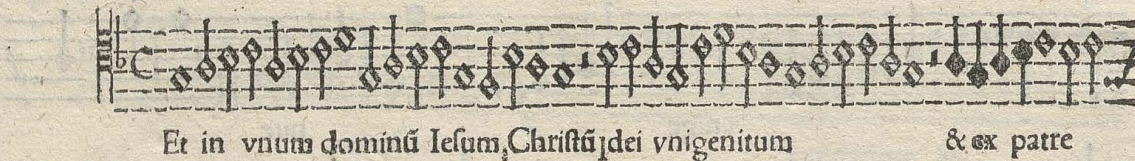 Et in vnum dominũ Ieſum Chriſtũ dei vnigenitum & ex patre